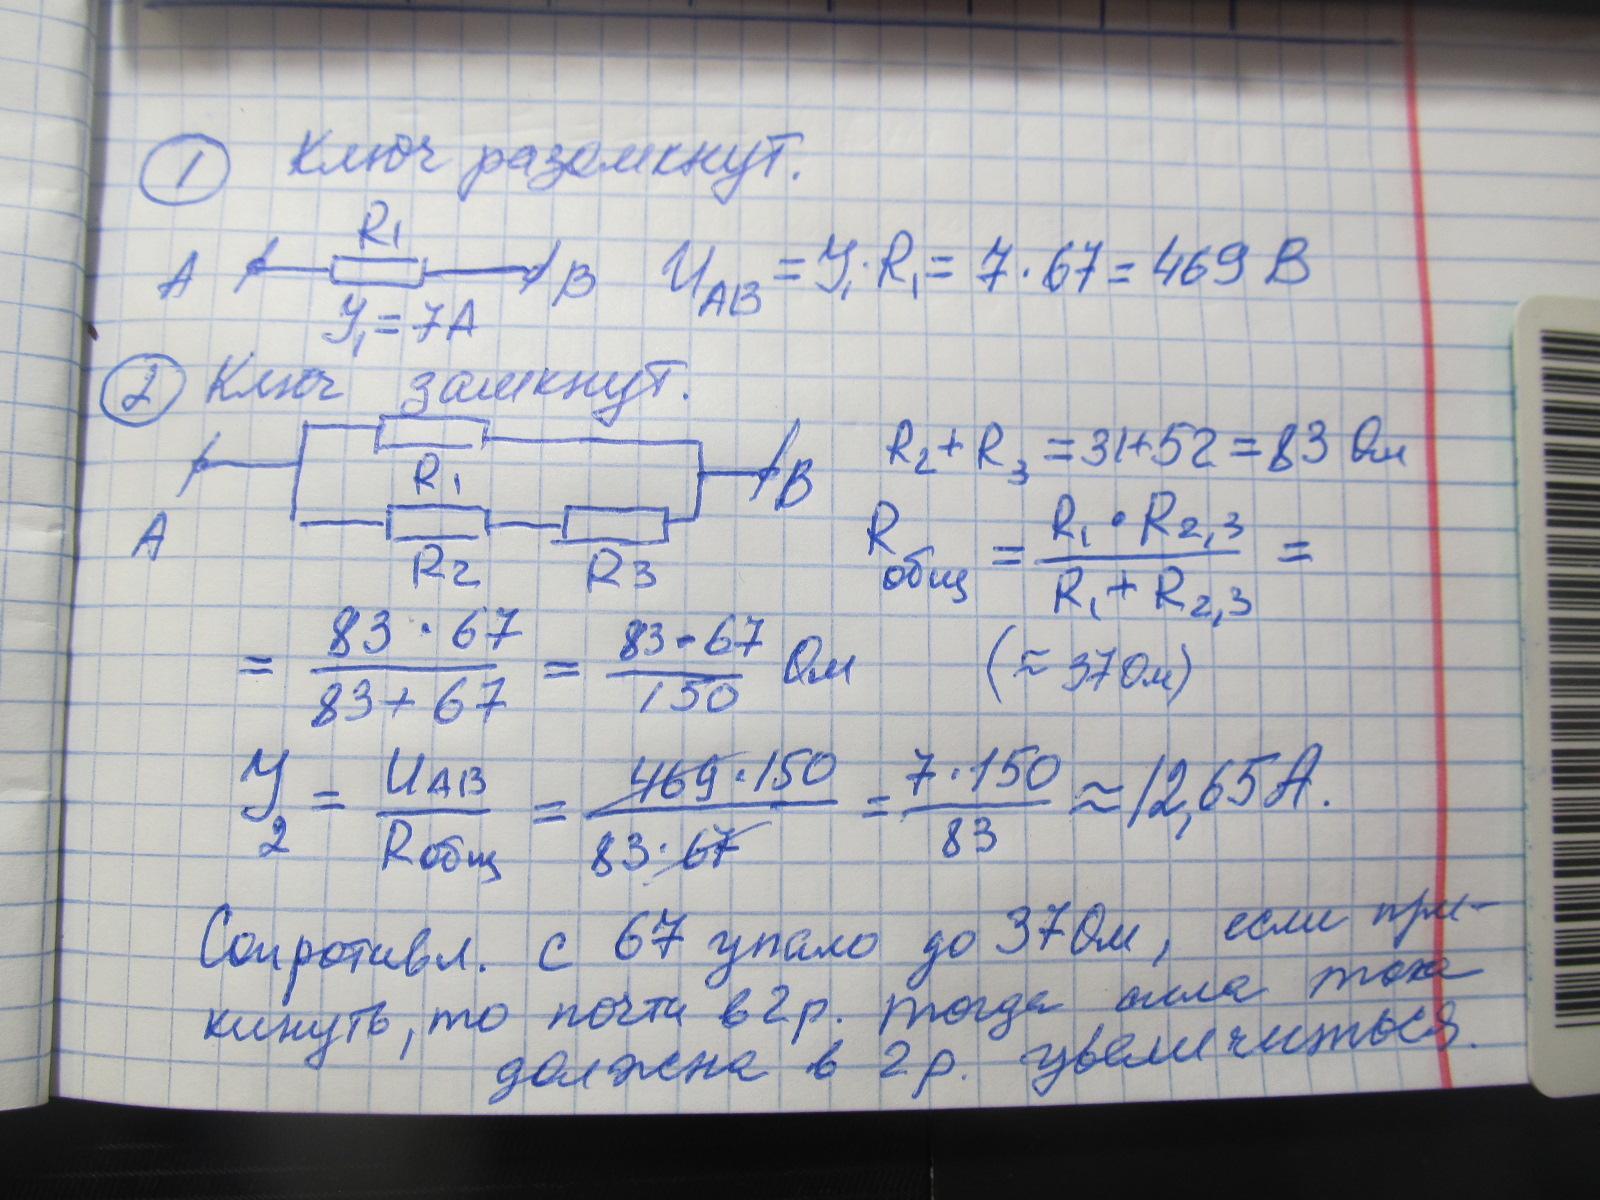 1 Ключ разомкнут.
R1
A B U AB = У1·R1 = 7·67 = 469 В
У1 = 7А
2 Ключ замкнут.
R1
A B
R2 R3
R2 + R3 = 31+52 = 83 Ом
Rобщ = R1 • R2,3 / R1 + R2,3 =
= 83·67 / 83+67 = 83·67 / 150 Ом (≈ 37 Ом)
У2 = UAB / Rобщ = 469·150 / 83·67 = 7·150 / 83 ≈ 12,65 А.
Сопротивл. с 67 упало до 37 Ом, если при-
кинуть, то почти в 2 р. тогда сила тока
должна в 2 р. увеличиться.